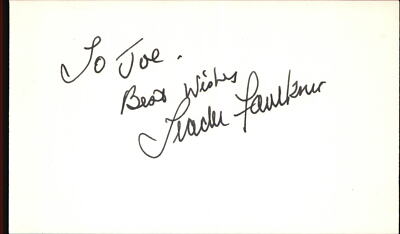 To Joe.
Best Wishes
Faulkner